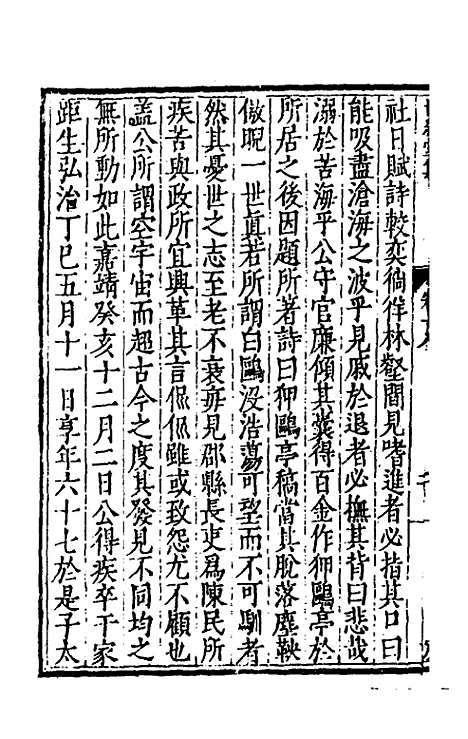 社日賦詩較奕徜徉林壑間見嗜進者必指其口曰
能吸盡滄海之波乎見戚於退者必撫其背曰悲哉
溺於苦海乎公守官廉傾其橐得百金作狎鷗亭於
所居之後因題所著詩曰狎鷗亭稿當其脫落塵鞅
傲睨一世眞若所謂白鷗没浩蕩可望而不可馴者
然其憂世之志至老不衰每見郡縣長吏爲陳民所
疾苦與政所宜興革其言侃侃雖或致怨尤不顧也
盖公所謂空宇宙而超古今之度其發見不同均之
無所動如此嘉靖癸亥十二月二日公得疾卒于家
距生弘治丁巳五月十一日享年六十七於是子太